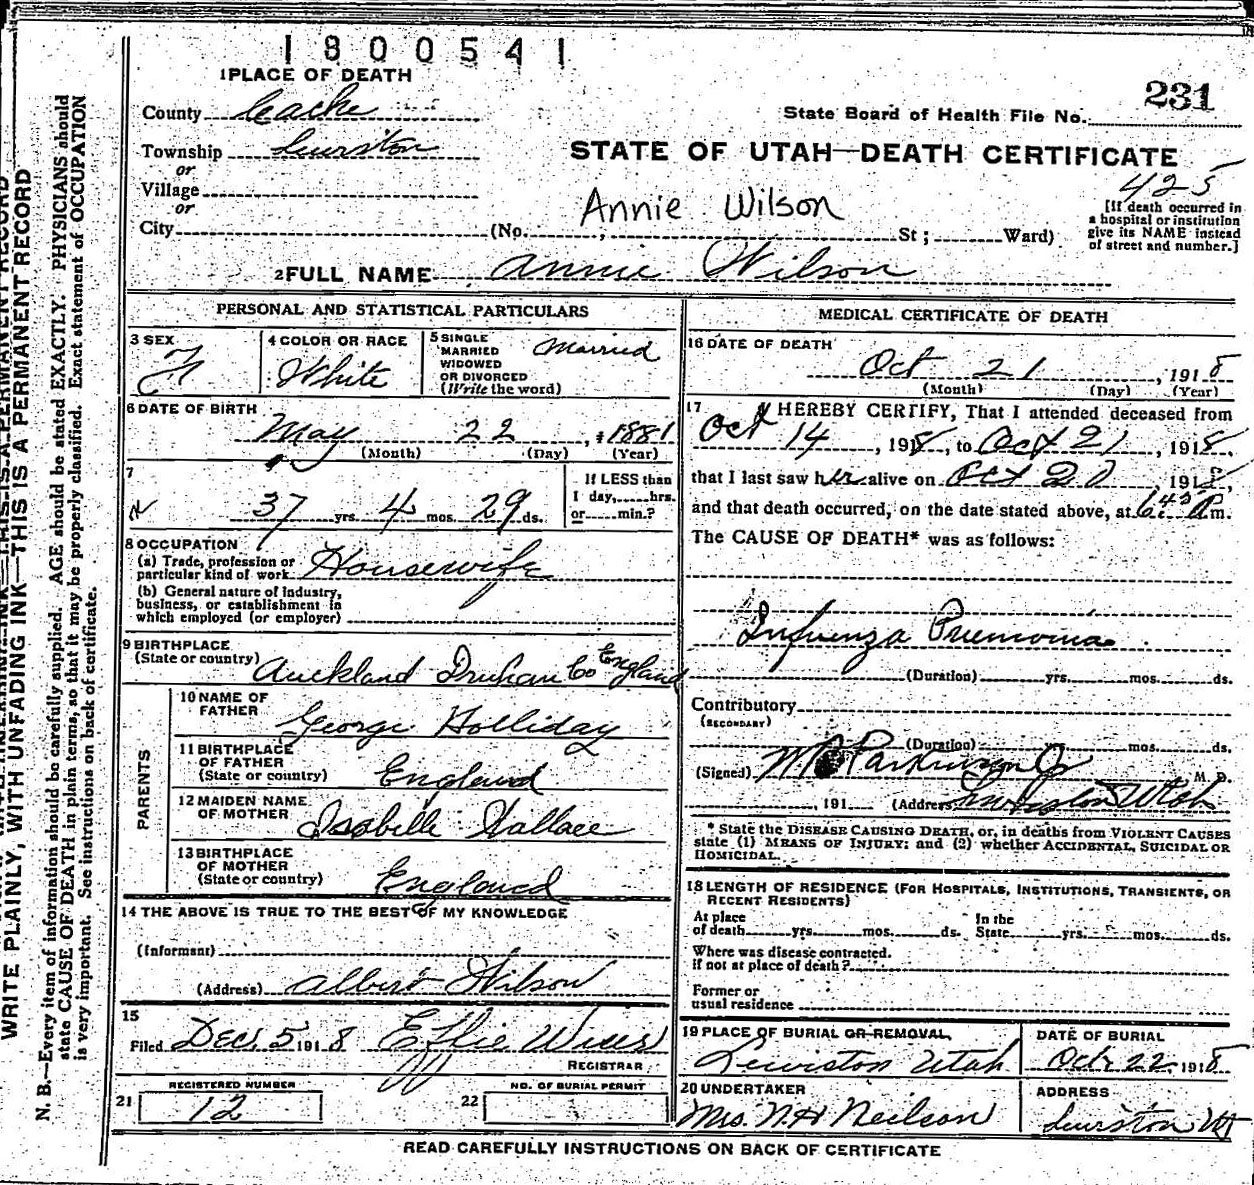 1800541
1 PLACE OF DEATH
231
State Board of Health File No.
County Cache
Township Lewiston
or
Village
or
City
STATE OF UTAH—DEATH CERTIFICATE
425
[If death occurred in
a hospital or institution
give its NAME instead
of street and number.]
Annie Wilson
(No. , St ; Ward)
2 FULL NAME Annie Wilson
PERSONAL AND STATISTICAL PARTICULARS
3 SEX
F
4 COLOR OR RACE
White
5 SINGLE
MARRIED
WIDOWED
OR DIVORCED
(Write the word)
Married
6 DATE OF BIRTH
May 22, 1881
(Month) (Day) (Year)
7
37 yrs. 4 mos. 29 ds.
If LESS than
1 day, hrs.
or min.?
8 OCCUPATION
(a) Trade, profession or
particular kind of work Housewife
(b) General nature of industry,
business, or establishment in
which employed (or employer)
9 BIRTHPLACE
(State or country) Auckland Druham Co England
PARENTS
10 NAME OF
FATHER
George Holliday
11 BIRTHPLACE
OF FATHER
(State or country) England
12 MAIDEN NAME
OF MOTHER Isabille Wallace
13 BIRTHPLACE
OF MOTHER
(State or country) England
14 THE ABOVE IS TRUE TO THE BEST OF MY KNOWLEDGE
(Informant)
(Address) Albert Wilson
15
Filed Dec. 5 1918 Effie Wiser
REGISTRAR
REGISTERED NUMBER
21 12
NO. OF BURIAL PERMIT
22
MEDICAL CERTIFICATE OF DEATH
16 DATE OF DEATH
Oct 21, 1918
(Month) (Day) (Year)
17 I HEREBY CERTIFY, That I attended deceased from
Oct 14, 1918, to Oct 21, 1918,
that I last saw her alive on Oct 20, 1918,
and that death occurred, on the date stated above, at 6:45 P m.
The CAUSE OF DEATH* was as follows:
Influenza Pneumonia
(Duration) yrs. mos. ds.
Contributory
(SECONDARY)
(Duration) yrs. mos. ds.
(Signed) Parkinson Jr M. D.
, 191 (Address) Lewiston Utah
* State the DISEASE CAUSING DEATH, or, in deaths from VIOLENT CAUSES
state (1) MEANS OF INJURY; and (2) whether ACCIDENTAL, SUICIDAL OR
HOMICIDAL.
18 LENGTH OF RESIDENCE (FOR HOSPITALS, INSTITUTIONS, TRANSIENTS, OR
RECENT RESIDENTS)
At place
of death yrs. mos. ds.
In the
State yrs. mos. ds.
Where was disease contracted.
if not at place of death?
Former or
usual residence
19 PLACE OF BURIAL OR REMOVAL
Lewiston Utah
DATE OF BURIAL
Oct 22 1918
20 UNDERTAKER
Mrs. N. H Neilson
ADDRESS
Lewiston Ut
READ CAREFULLY INSTRUCTIONS ON BACK OF CERTIFICATE
WRITE PLAINLY, WITH UNFADING INK—THIS IS A PERMANENT RECORD
N. B.—Every item of information should be carefully supplied. AGE should be stated EXACTLY. PHYSICIANS should
state CAUSE OF DEATH in plain terms, so that it may be properly classified. Exact statement of OCCUPATION
is very important. See instructions on back of certificate.